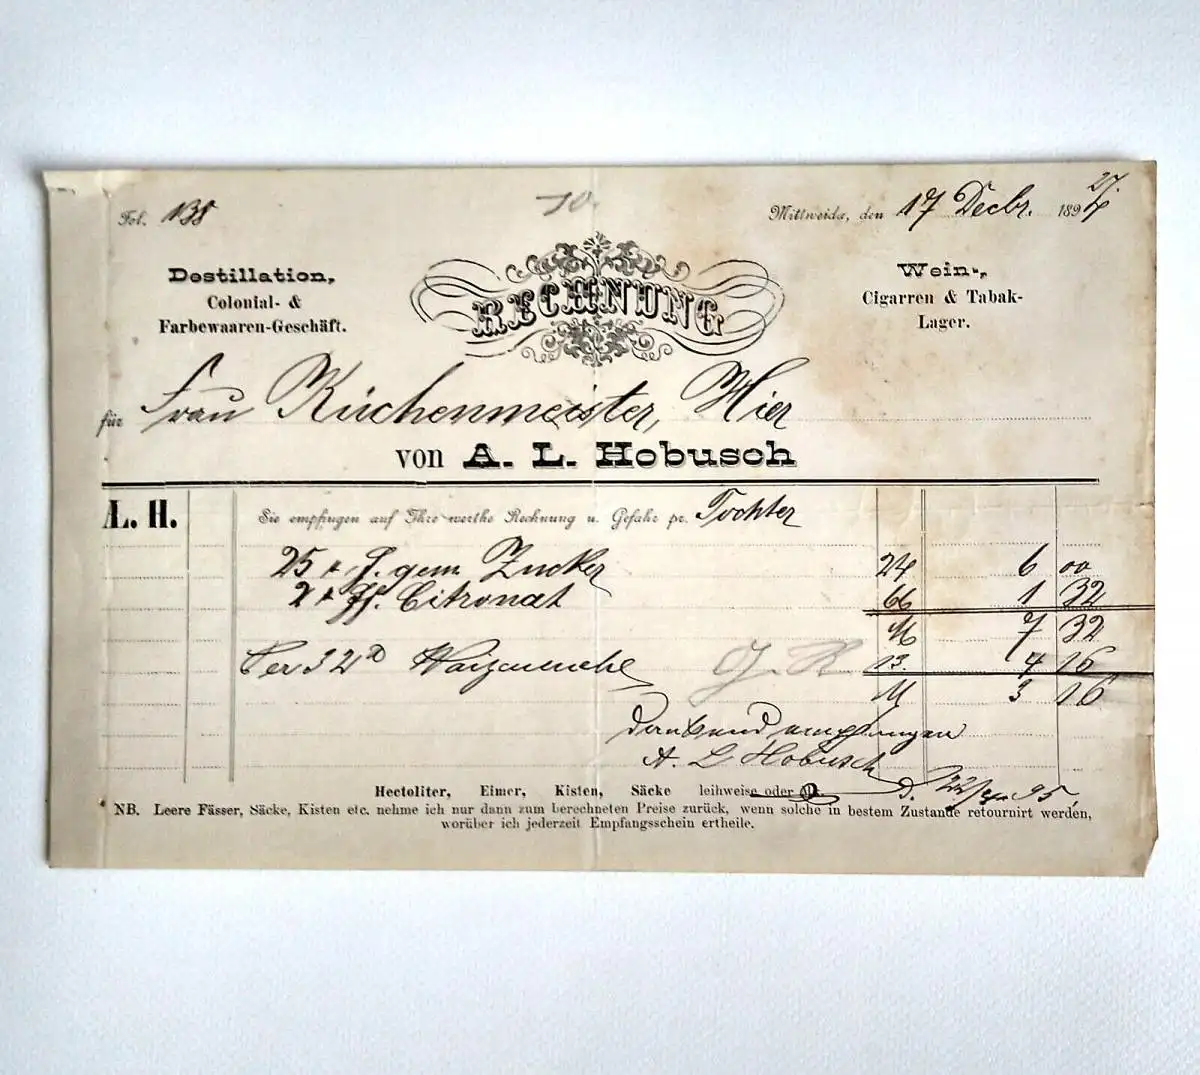 Fol. 138
70.
27.
Mittweida, den 17 Decbr. 1894
Destillation,
Colonial- &
Farbewaaren-Geschäft.
RECHNUNG
Wein-,
Cigarren & Tabak-
Lager.
für Frau Küchenmeister, Hier
von A. L. Hobusch
A. L. H.
Sie empfingen auf Ihre werthe Rechnung u. Gefahr pr. Tochter
25 gem. Zucker 24 6 00
2 ff. Citronat 66 1 32
M 7 32
32 13. 4 16
M 3 16
dankend empfangen
A. L Hobusch
d. 95
Hectoliter, Eimer, Kisten, Säcke leihweise oder
NB. Leere Fässer, Säcke, Kisten etc. nehme ich nur dann zum berechneten Preise zurück, wenn solche in bestem Zustande retournirt werden,
worüber ich jederzeit Empfangsschein ertheile.